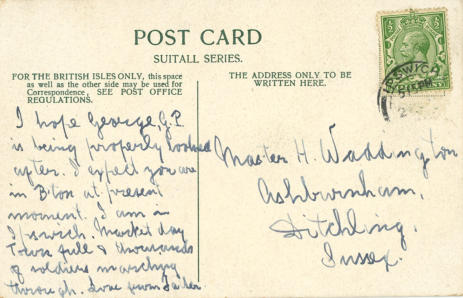 POST CARD
SUITALL SERIES.
FOR THE BRITISH ISLES ONLY, this space
as well as the other side may be used for
Correspondence. SEE POST OFFICE
REGULATIONS.
I hope George, G.P.
is being properly looked
after. I expect you are
in B'ton at present
moment. I am in
Ipswich. Market day
Town full & thousands
of soldiers marching
through. Love from Father
THE ADDRESS ONLY TO BE
WRITTEN HERE.
Master H. Waddington
Ashburnham,
Ditchling.
Sussex.
IPSWICH